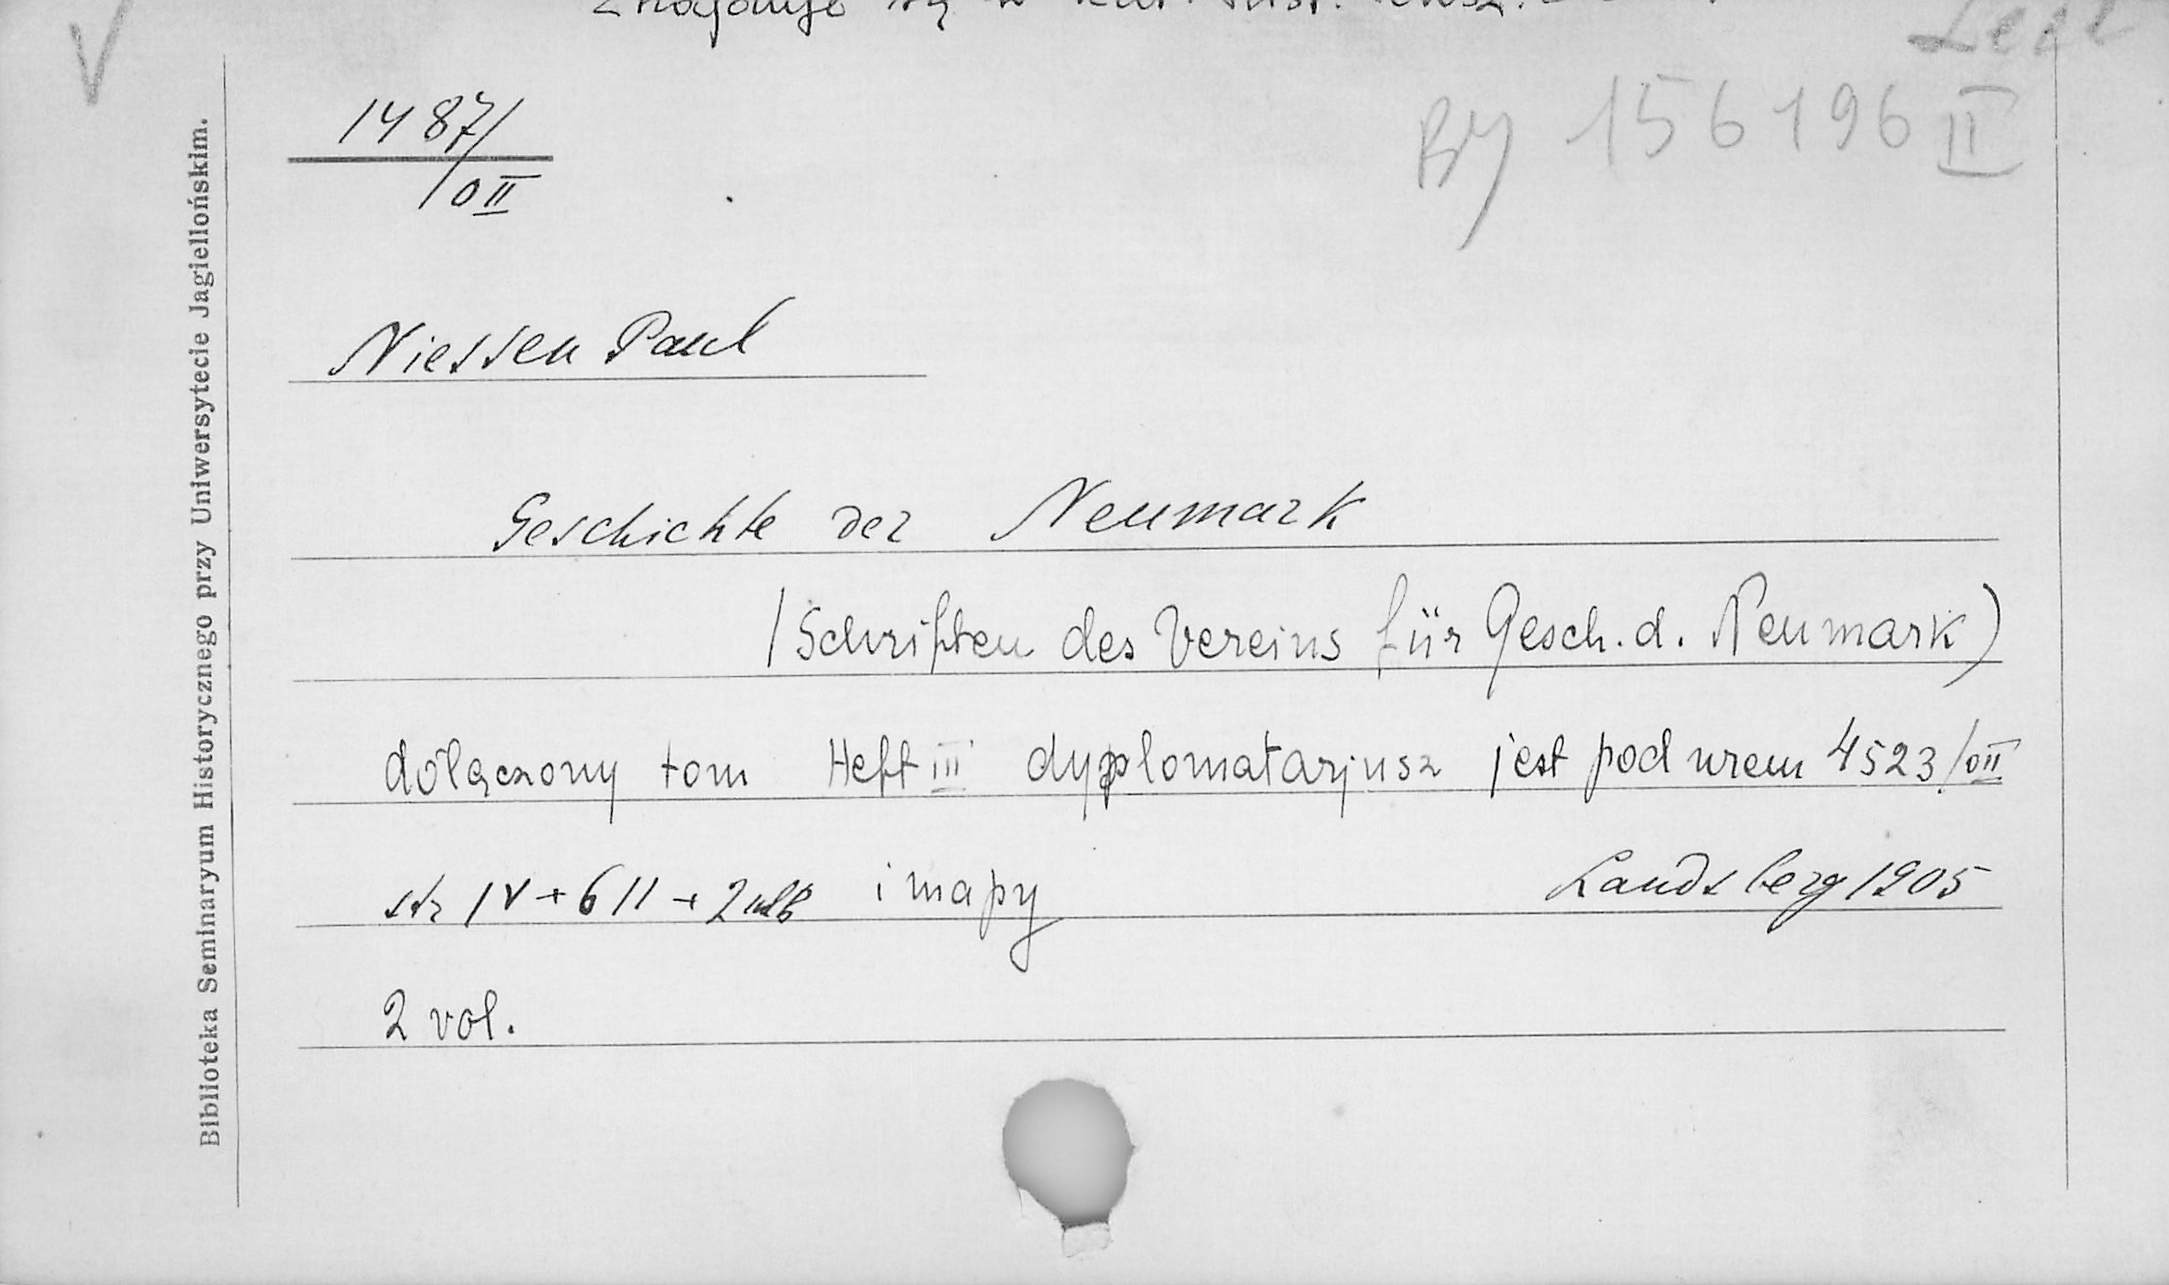 Znajduje się w
V
1487/
/0II
BJ 156196 II
Niessen Paul
Geschichte der Neumark
(Schriften des Vereins für Gesch. d. Neumark)
dołączony tom Heft III dyplomatarjusz jest pod nrem 4523/0II
str IV + 611 + 2 nlb i mapy Landsberg 1905
2 vol.
Biblioteka Seminaryum Historycznego przy Uniwersytecie Jagiellońskim.